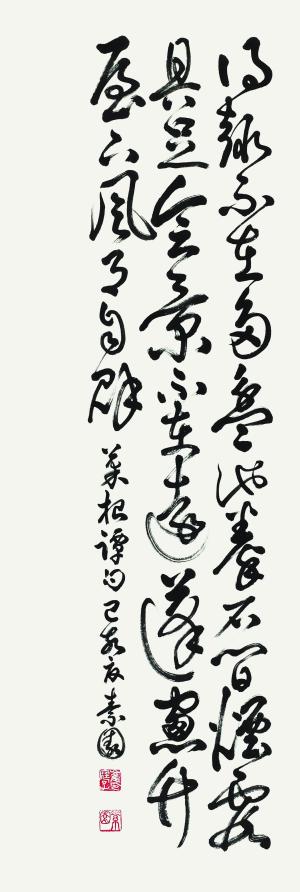 得趣不在多盆池拳石間煙霞
具足會景不在遠蓬窓竹
屋下風月自賒 菜根譚句 己亥夏 素園